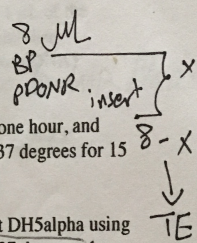 8 µL
BP
PDONR insert
x
one hour, and
8 - x
37 degrees for 15
t DH5alpha using
TE